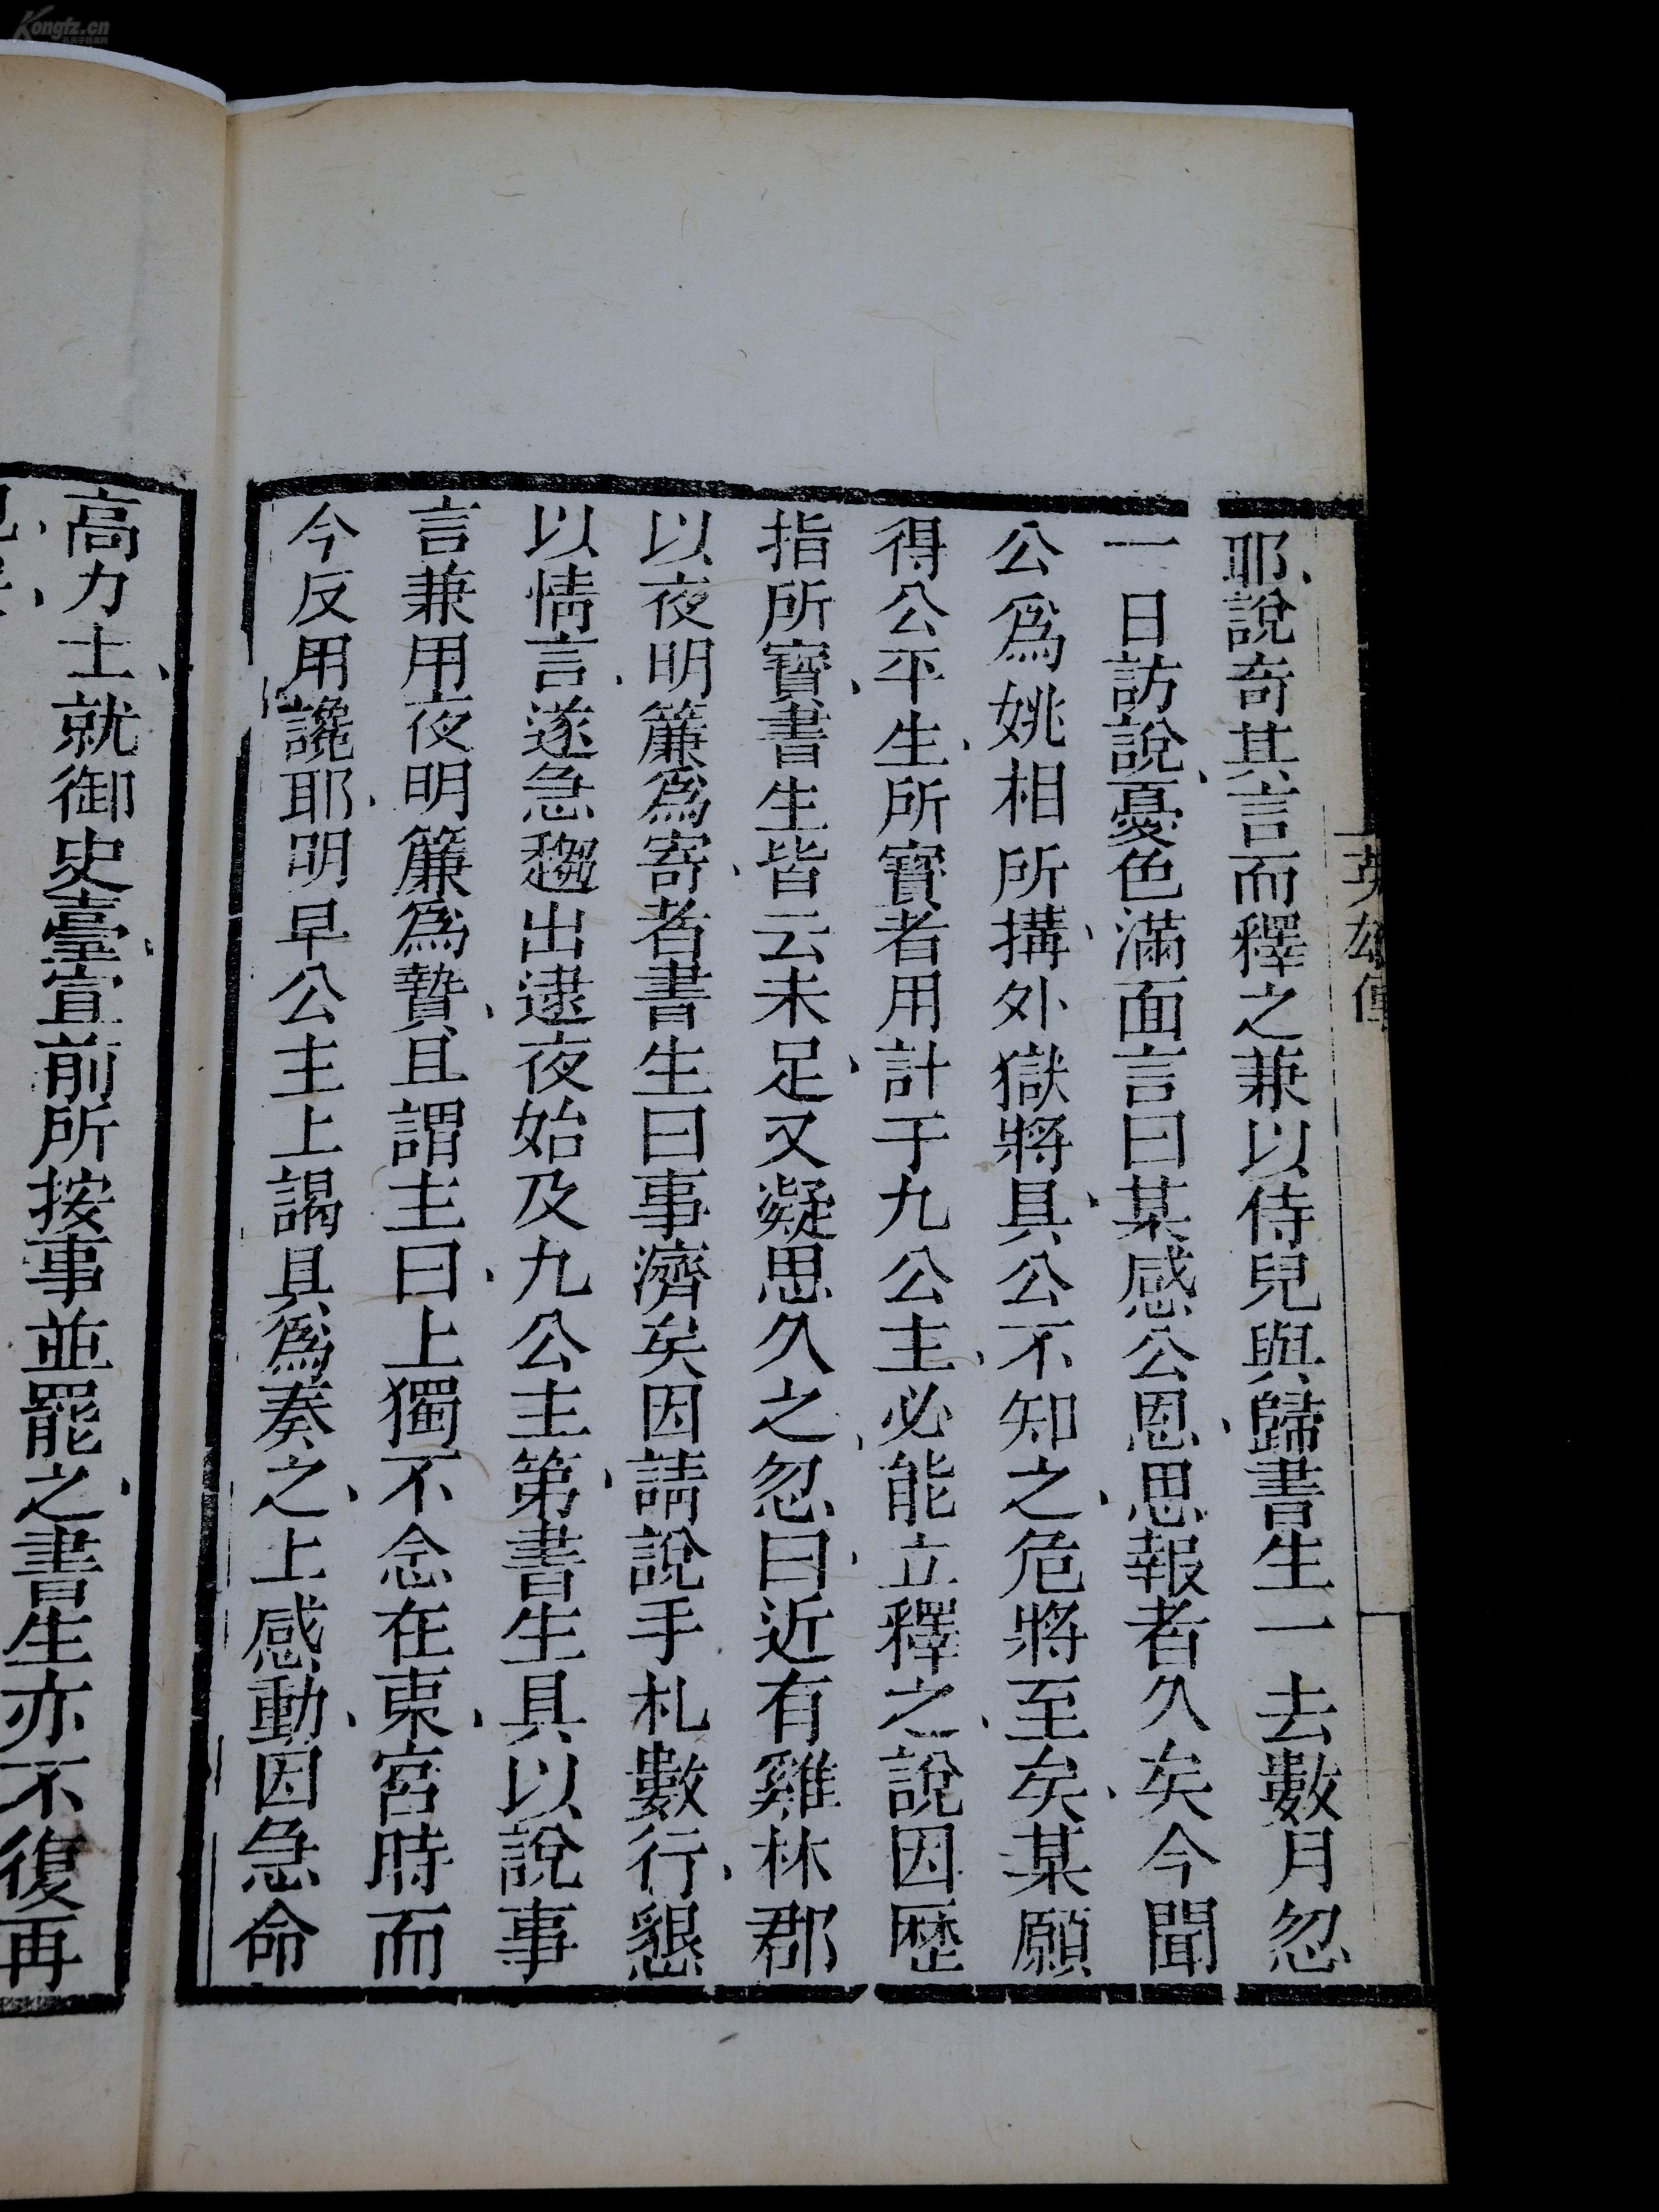 英雄傳
耶說奇其言而釋之兼以侍兒與歸書生一去數月忽
一日訪說憂色滿面言曰某感公恩思報者久矣今聞
公爲姚相所搆外獄將具公不知之危將至矣某願
得公平生所寶者用計于九公主必能立釋之說因歷
指所寶書生皆云未足又凝思久之忽曰近有雞林郡
以夜明簾爲寄者書生曰事濟矣因請說手札數行懇
以情言遂急趨出逮夜始及九公主第書生具以說事
言兼用夜明簾爲贄且謂主曰上獨不念在東宮時而
今反用讒耶明早公主上謁具爲奏之上感動因急命
高力士就御史臺宣前所按事並罷之書生亦不復再
Kongfz.cn